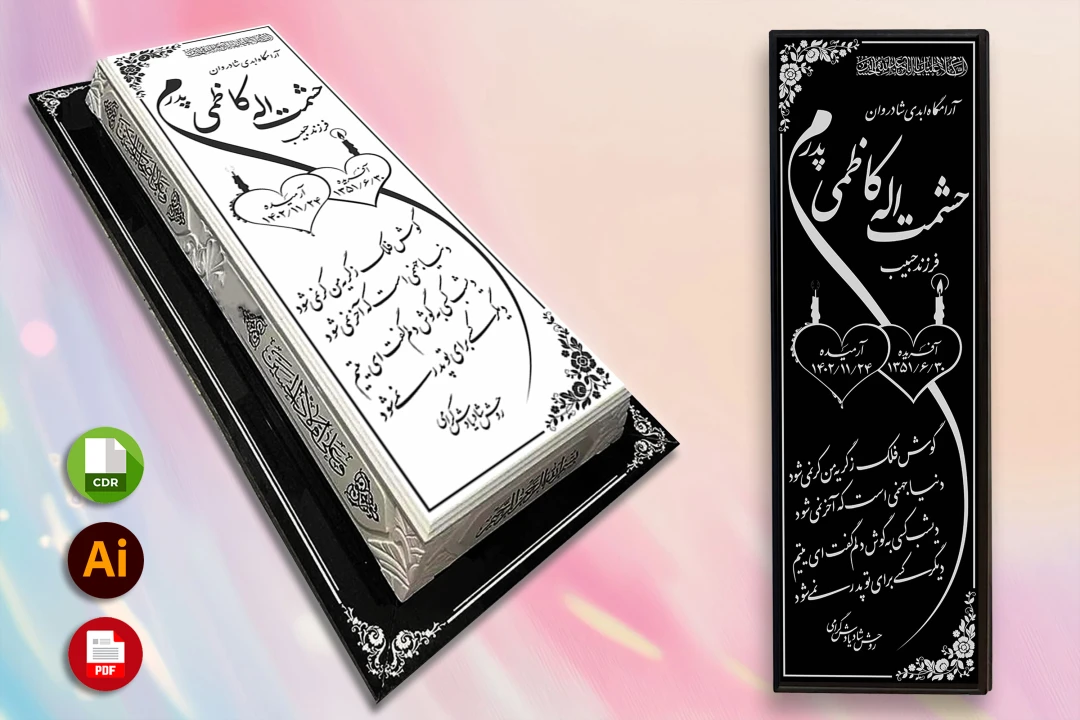 آرامگاه ابدی شادروان
پدرم
حشمت اله کاظمی
فرزند حبیب
آفریده
۱۳۵۱/۶/۳۰
آرمیده
۱۴۰۲/۱۱/۲۴
گوش فلک ز گریه من کر نمی شود
دنیا جهنمی است که آخر نمی شود
دیشب کسی به گوش دلم گفت ای یتیم
دیگر کسی برای تو پدر نمی شود
روحش شاد یادش گرامی
CDR
Ai
PDF
السلام علیک یا اباعبدالله الحسین
آرامگاه ابدی شادروان
پدرم
حشمت اله کاظمی
فرزند حبیب
آفریده
۱۳۵۱/۶/۳۰
آرمیده
۱۴۰۲/۱۱/۲۴
گوش فلک ز گریه من کر نمی شود
دنیا جهنمی است که آخر نمی شود
دیشب کسی به گوش دلم گفت ای یتیم
دیگر کسی برای تو پدر نمی شود
روحش شاد یادش گرامی